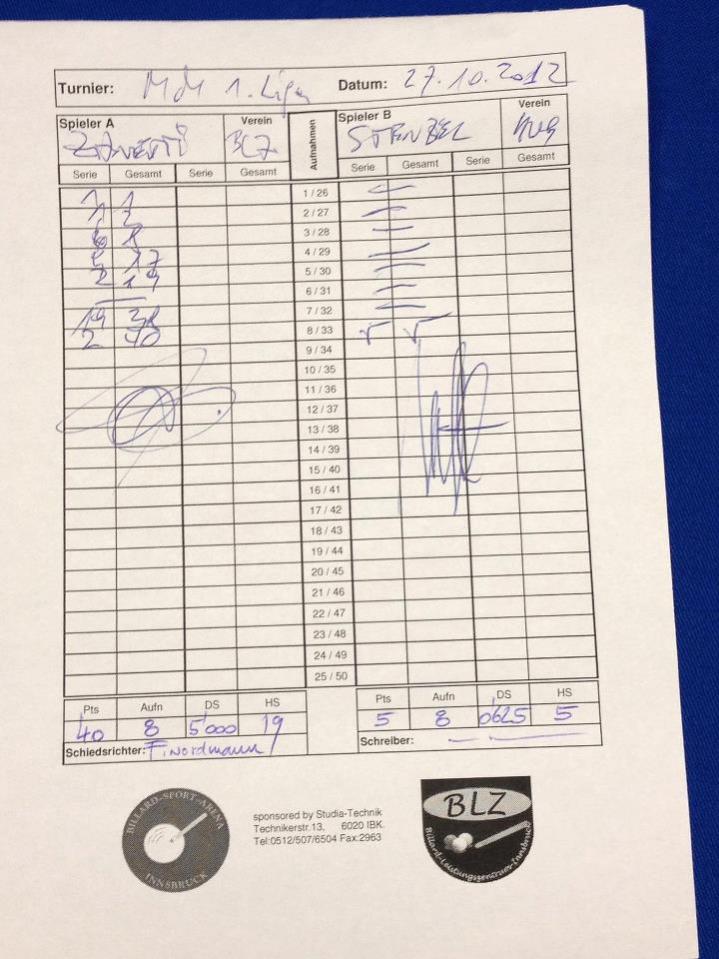 Turnier: MdM 1. Liga Datum: 27.10.2012
Spieler A Verein Aufnahmen Spieler B Verein
BLZ STENZEL
Serie Gesamt Serie Gesamt Serie Gesamt Serie Gesamt
1 1 1 / 26 —
2 / 27 — —
6 8 3 / 28 —
17 4 / 29 —
2 19 5 / 30 —
— 6 / 31 —
19 38 7 / 32 —
2 40 8 / 33 5 5
9 / 34
10 / 35
11 / 36
12 / 37
13 / 38
14 / 39
15 / 40
16 / 41
17 / 42
18 / 43
19 / 44
20 / 45
21 / 46
22 / 47
23 / 48
24 / 49
25 / 50
Pts Aufn DS HS Pts Aufn DS HS
40 8 5'000 19 5 8 0'625 5
Schiedsrichter: F. Nordmann Schreiber: —
BILLARD-SPORT-ARENA
INNSBRUCK
sponsored by Studia-Technik
Technikerstr.13, 6020 IBK.
Tel:0512/507/6504 Fax:2963
BLZ
Billard-Leistungszentrum-Innsbruck